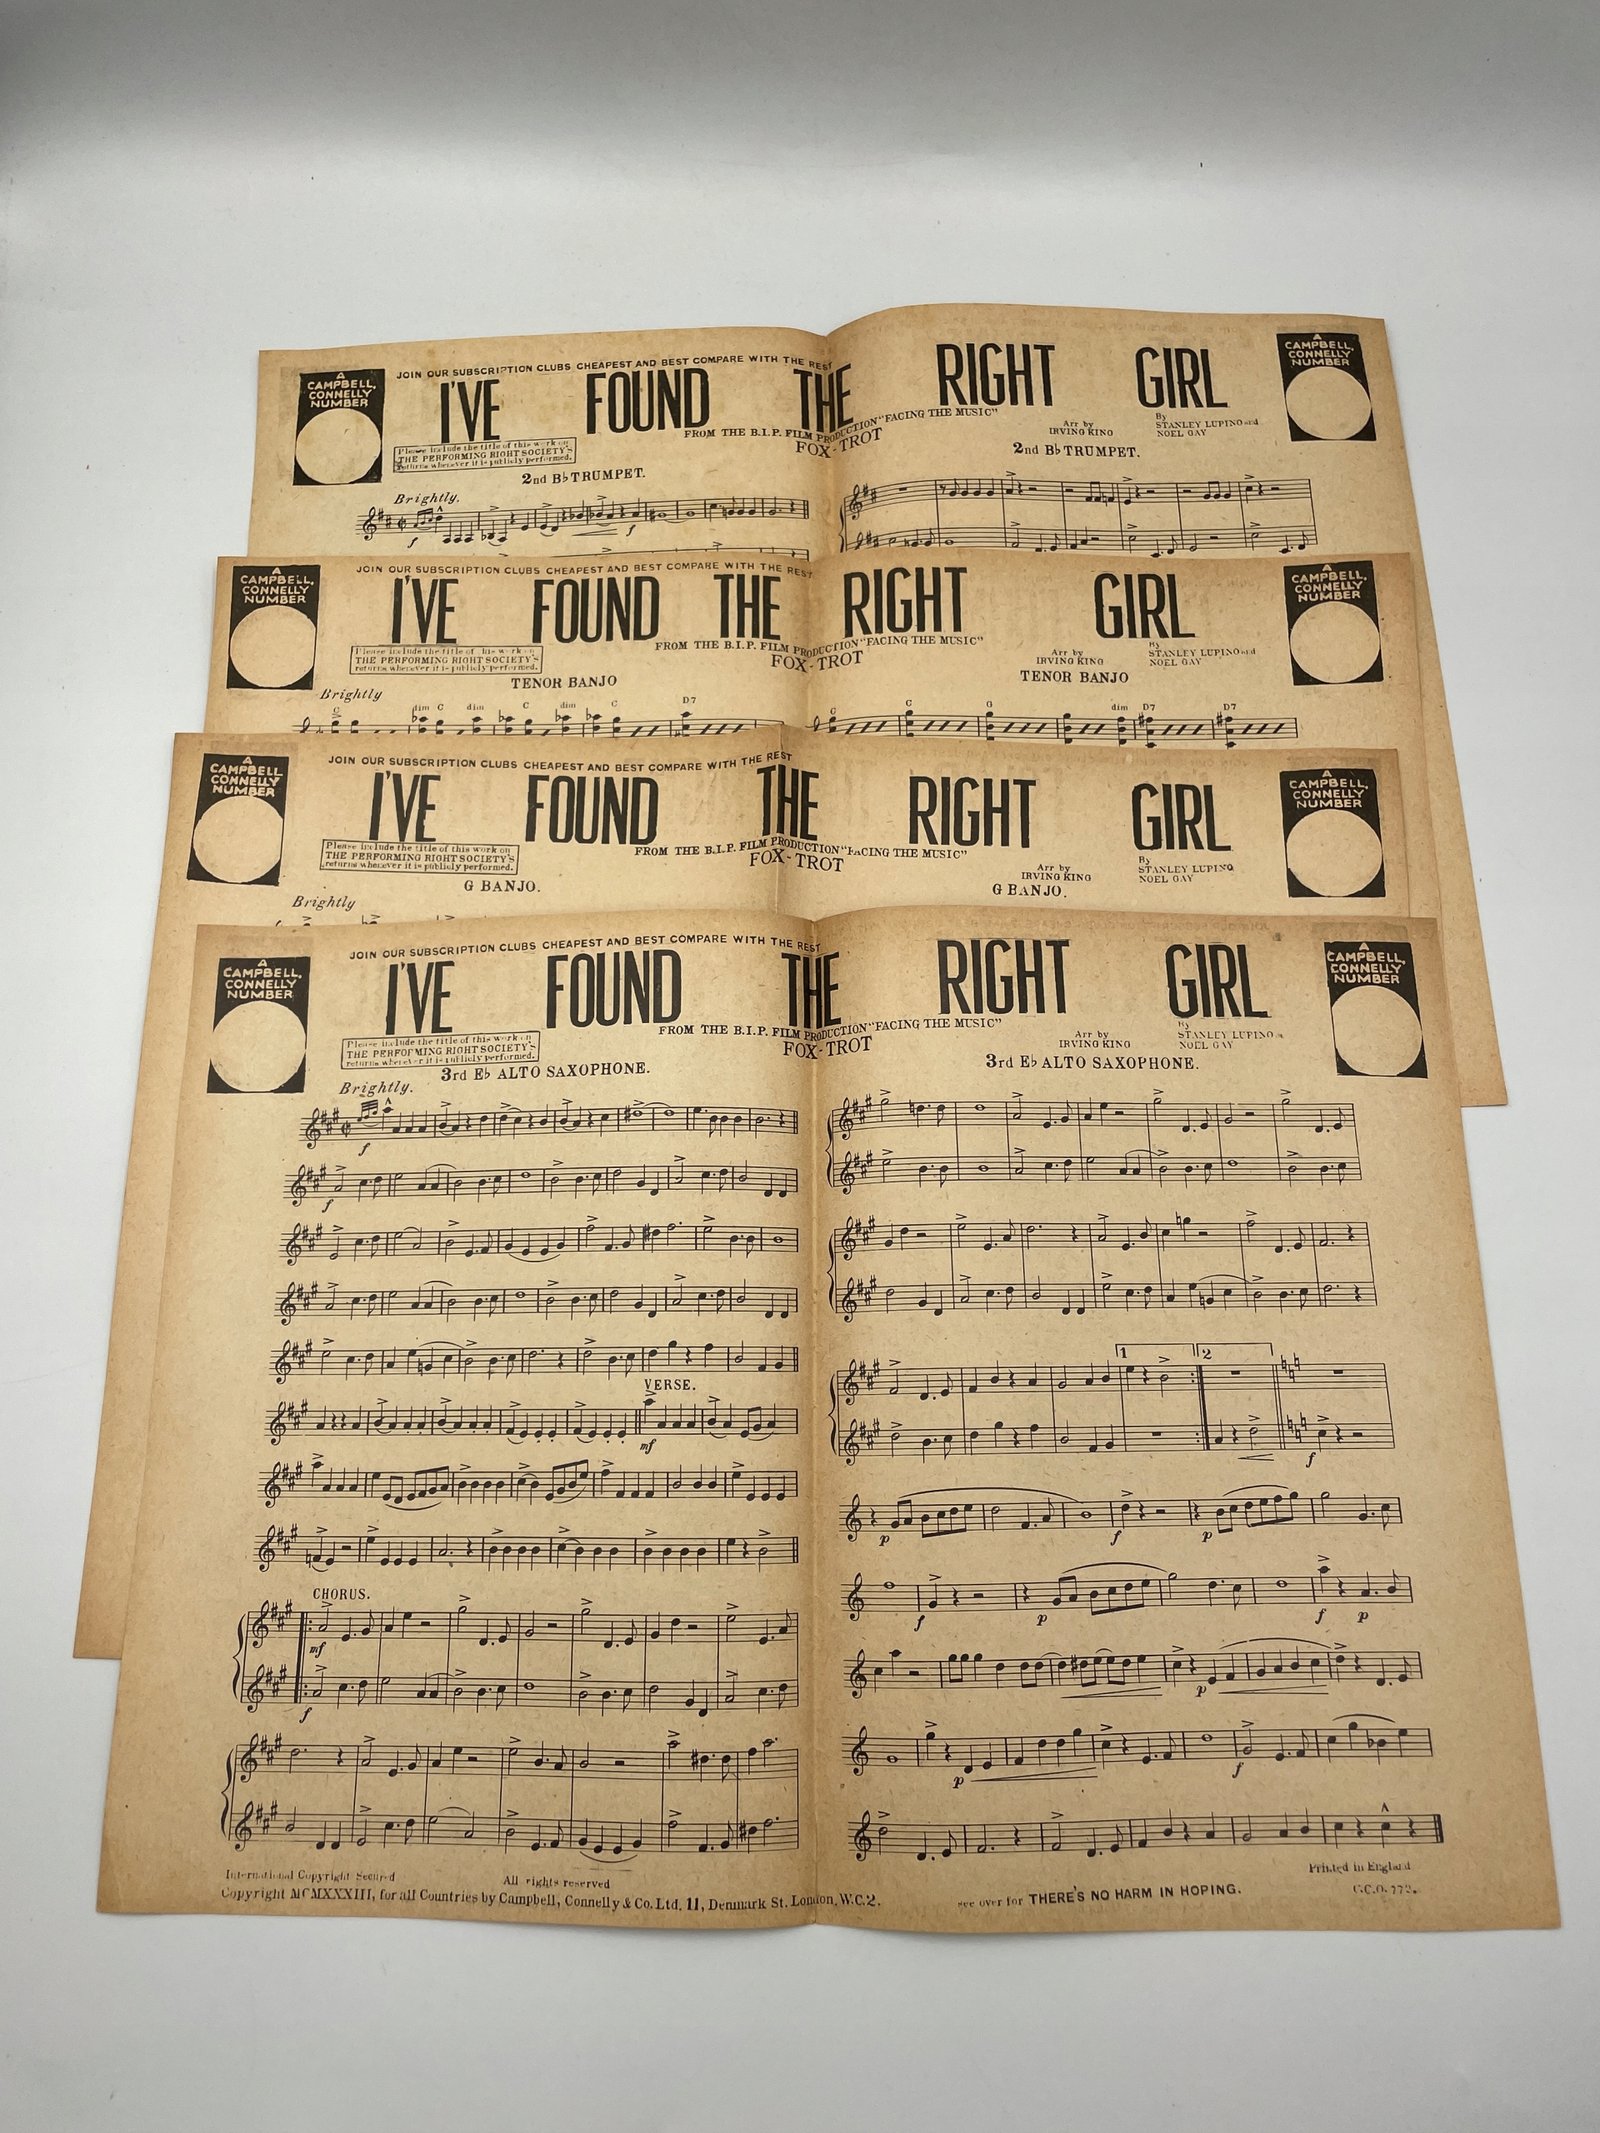 JOIN OUR SUBSCRIPTION CLUBS CHEAPEST AND BEST COMPARE WITH THE REST
A CAMPBELL, CONNELLY NUMBER
I'VE FOUND THE RIGHT GIRL
A CAMPBELL, CONNELLY NUMBER
FROM THE B.I.P. FILM PRODUCTION "FACING THE MUSIC"
FOX-TROT
Please include the title of this work on
THE PERFORMING RIGHT SOCIETY'S
returns wherever it is publicly performed.
Arr by
IRVING KING
By
STANLEY LUPINO and
NOEL GAY
2nd B♭ TRUMPET.
2nd B♭ TRUMPET.
Brightly.
f
f
JOIN OUR SUBSCRIPTION CLUBS CHEAPEST AND BEST COMPARE WITH THE REST
A CAMPBELL, CONNELLY NUMBER
I'VE FOUND THE RIGHT GIRL
A CAMPBELL, CONNELLY NUMBER
FROM THE B.I.P. FILM PRODUCTION "FACING THE MUSIC"
FOX-TROT
Please include the title of this work on
THE PERFORMING RIGHT SOCIETY'S
returns wherever it is publicly performed.
Arr by
IRVING KING
By
STANLEY LUPINO and
NOEL GAY
TENOR BANJO
TENOR BANJO
Brightly
C dim C dim C dim C D7
C C G dim D7 D7
JOIN OUR SUBSCRIPTION CLUBS CHEAPEST AND BEST COMPARE WITH THE REST
A CAMPBELL CONNELLY NUMBER
I'VE FOUND THE RIGHT GIRL
A CAMPBELL, CONNELLY NUMBER
FROM THE B.I.P. FILM PRODUCTION "FACING THE MUSIC"
FOX-TROT
Please include the title of this work on
THE PERFORMING RIGHT SOCIETY'S
returns wherever it is publicly performed.
Arr by
IRVING KING
By
STANLEY LUPINO
NOEL GAY
G BANJO.
G BANJO.
Brightly
JOIN OUR SUBSCRIPTION CLUBS CHEAPEST AND BEST COMPARE WITH THE REST
A CAMPBELL, CONNELLY NUMBER
I'VE FOUND THE RIGHT GIRL
A CAMPBELL, CONNELLY NUMBER
FROM THE B.I.P. FILM PRODUCTION "FACING THE MUSIC"
FOX-TROT
Please include the title of this work on
THE PERFORMING RIGHT SOCIETY'S
returns wherever it is publicly performed.
Arr by
IRVING KING
By
STANLEY LUPINO
NOEL GAY
3rd E♭ ALTO SAXOPHONE.
3rd E♭ ALTO SAXOPHONE.
Brightly.
f
f
VERSE.
mf
CHORUS.
mf
f
1 2
f
p f p
f p f p
p
p f
International Copyright Secured
All rights reserved
Printed in England
Copyright MCMXXXIII, for all Countries by Campbell, Connelly & Co. Ltd. 11, Denmark St. London, W.C.2.
see over for THERE'S NO HARM IN HOPING.